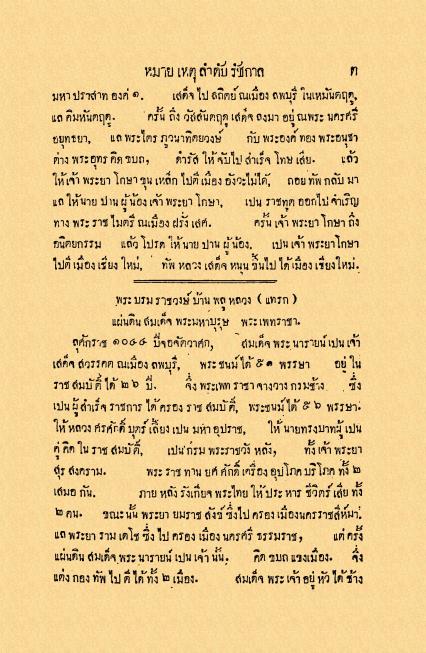 หมาย เหตุ ลำดับ รัชกาล ๓
มหา ปราสาท องค์ ๑. เสด็จ ไป สถิตย์ ณเมือง ลพบุรี ในเหมันตฤดู,
แล คิมหันตฤดู. ครั้น ถึง วัสสันตฤดู เสด็จ ลงมา อยู่ ณพระ นครศรี
อยุทธยา, แล พระไตร ภูวนาทิตยวงษ์ กับ พระองค์ ทอง พระอนุชา
ต่าง พระอุทร คิด ขบถ, ดำรัส ให้ จับไป สำเร็จ โทษ เสีย. แล้ว
ให้เจ้า พระยา โกษา ขุน เหล็ก ไปตี เมือง อังวะไม่ได้, ถอย ทัพ กลับ มา
แล ให้ นาย ปาน ผู้น้อง เจ้า พระยา โกษา, เปน ราชทูต ออกไป จำเริญ
ทาง พระ ราช ไมตรี ณเมือง ฝรั่ง เสศ. ครั้น เจ้า พระยา โกษา ถึง
อนิตยกรรม แล้ว โปรด ให้ นาย ปาน ผู้น้อง, เปน เจ้า พระยา โกษา
ไปตี เมือง เชียง ใหม่, ทัพ หลวง เสด็จ หนุน ขึ้นไป ได้ เมือง เชียง ใหม่.
พระ บรม ราชวงษ์ บ้าน พลู หลวง (แทรก)
แผ่นดิน สมเด็จ พระมหาบุรุษ พระเพทราชา.
ลุศักราช ๑๐๔๔ ปีจอจัตวาศก, สมเด็จ พระ นารายน์ เปน เจ้า
เสด็จ สวรรคต ณเมือง ลพบุรี, พระ ชนม์ ได้ ๕๑ พรรษา อยู่ ใน
ราช สมบัติ ได้ ๒๖ ปี. จึ่ง พระเพท ราชา จางวาง กรมช้าง ซึ่ง
เปน ผู้ สำเร็จ ราชการ ได้ ครอง ราช สมบัติ, พระชนม์ ได้ ๕๖ พรรษา.
ให้ หลวง ศรศักดิ์ บุตร์ เลี้ยง เปน มหา อุปราช, ให้ นายทรงบาทผู้ เปน
คู่ คิด ใน ราช สมบัติ, เปน กรม พระราชวัง หลัง, ทั้ง เจ้า พระยา
สุร สงคราม. พระ ราช ทาน ยศ ศักดิ์ เครื่อง อุปโภค บริโภค ทั้ง ๒
เสมอ กัน. ภาย หลัง รังเกียจ พระไทย ให้ ประ หาร ชีวิตร์ เสีย ทั้ง
๒ คน. ขณะ นั้น พระยา ยมราช สังข์ ซึ่งไป ครอง เมืองนครราชสีห์มา.
แล พระยา ราม เดโช ซึ่ง ไป ครอง เมือง นครศรี ธรรมราช, แต่ ครั้ง
แผ่นดิน สมเด็จ พระ นารายน์ เปน เจ้า นั้น. คิด ขบถ แขงเมือง. จึ่ง
แต่ง กอง ทัพ ไป ตี ได้ ทั้ง ๒ เมือง. สมเด็จ พระ เจ้า อยู่ หัว ได้ ช้าง